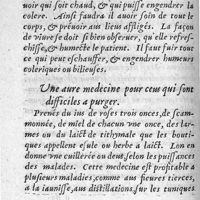 uoir qui soit chaud, & qui puisse engendrer la
colere. Ainsi faudra il auoir soin de tout le
corps, & preuoir aus lieux affligés. La façon
de viure se doit si bien obseruer, qu'elle refres-
chisse, & humecte le patient. Il faut fuir tout
ce qui peut eschauffer, & engendrer humeurs
coleriques ou bilieuses.
Une autre medecine pour ceus qui sont
difficiles a purger.
Prenés du ius de roses trois onces, de scam-
monnée, de miel de chacun vne once, des lar-
mes ou du laict de tithymale que les bouti-
ques appellent esule ou herbe a laict. Lon en
donne vne cuillerée ou deus, selon les puissances
des malades. Cette medecine est profitable a
plusieurs maladies, comme aus fieures tierces,
a la iaunisse, aus distillations, sur les tuniques